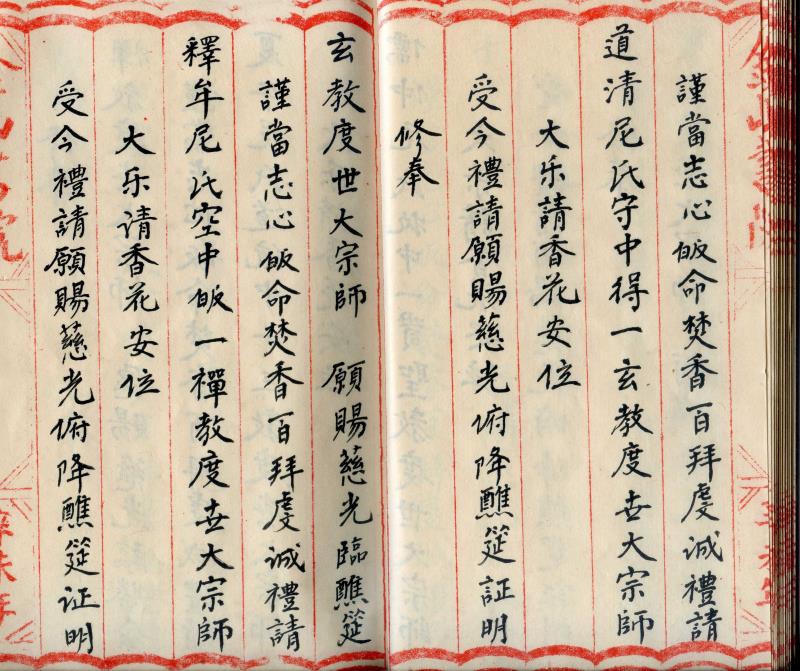 謹當志心皈命焚香百拜虔诚禮請
道清尼氏守中得一玄教度世大宗師
大乐請香花安位
受今禮請願賜慈光俯降醮筵証明
修奉
玄教度世大宗師 願賜慈光臨醮筵
謹當志心皈命焚香百拜虔诚禮請
釋牟尼氏空中皈一禪教度世大宗師
大乐请香花安位
受今禮請願賜慈光俯降醮筵证明